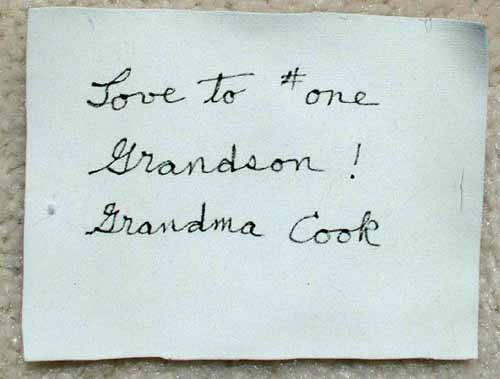 Love to #one
Grandson!
Grandma Cook